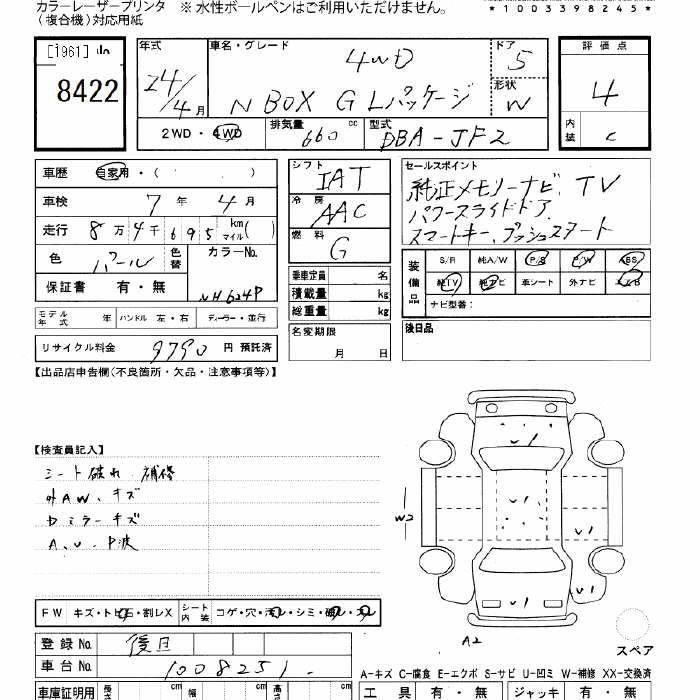 カラーレーザープリンタ ※ 水性ボールペンはご利用いただけません。
(複合機)対応用紙
*1003398245*
[1961]
8422
年式
24/4月
車名・グレード
4WD
N BOX G Lパッケージ
ドア
5
形状
W
2WD・4WD
排気量 660 cc
型式 DBA-JF2
評価点
4
内装 C
車歴 自家用・( )
車検 7年 4月
走行 8万4千695 km マイル( )
色 パール 色替
カラーNo.
NH624P
保証書 有・無
モデル年式 年
ハンドル 左・右
ディーラー・並行
リサイクル料金 9790 円 預託済
シフト
IAT
冷房
AAC
燃料
G
乗車定員 名
積載量 kg
総重量 kg
名変期限
月 日
セールスポイント
純正メモリーナビ. TV
パワースライドドア.
スマートキー、プッシュスタート
装備品
S/R 純A/W P/S P/W ABS
純TV 純ナビ 車シート 外ナビ エアB
ナビ型番:
後日品
【出品店申告欄(不良箇所・欠品・注意事項等)】
【検査員記入】
シート破れ 補修
外AW、キズ
ドミラーキズ
A、U、P波
W2
A2
スペア
FW キズ・トビ石・割レX
シート内装 コゲ・穴・汚レ・シミ・破レ・スレ
登録No. 後日
車台No. 1008251
A-キズ C-腐食 E-エクボ S-サビ U-凹ミ W-補修 XX-交換済
車庫証明用 長さ cm 幅 cm 高さ cm
工具 有・無 ジャッキ 有・無